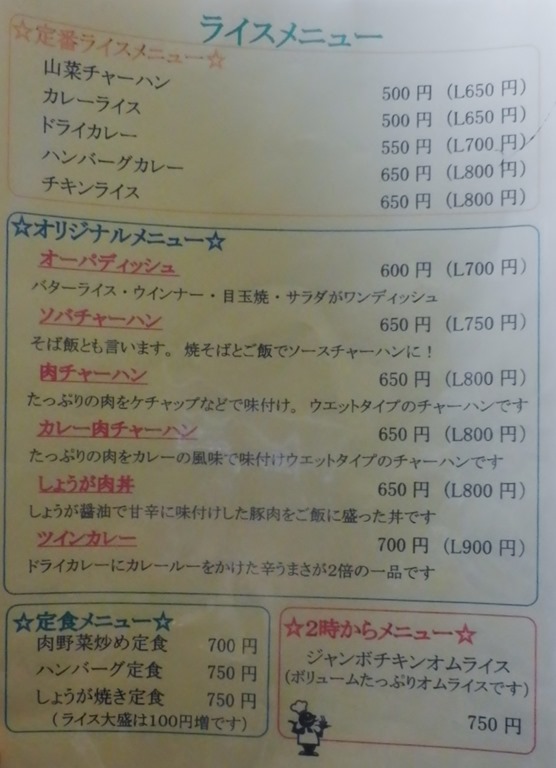 ライスメニュー
☆定番ライスメニュー☆
山菜チャーハン 500円 (L650円)
カレーライス 500円 (L650円)
ドライカレー 550円 (L700円)
ハンバーグカレー 650円 (L800円)
チキンライス 650円 (L800円)
☆オリジナルメニュー☆
オーバディッシュ 600円 (L700円)
バターライス・ウインナー・目玉焼・サラダがワンディッシュ
ソバチャーハン 650円 (L750円)
そば飯とも言います。 焼そばとご飯でソースチャーハンに！
肉チャーハン 650円 (L800円)
たっぷりの肉をケチャップなどで味付け。 ウエットタイプのチャーハンです
カレー肉チャーハン 650円 (L800円)
たっぷりの肉をカレーの風味で味付けウエットタイプのチャーハンです
しょうが肉丼 650円 (L800円)
しょうが醤油で甘辛に味付けした豚肉をご飯に盛った丼です
ツインカレー 700円 (L900円)
ドライカレーにカレールーをかけた辛うまさが2倍の一品です
☆定食メニュー☆
肉野菜炒め定食 700円
ハンバーグ定食 750円
しょうが焼き定食 750円
(ライス大盛は100円増です)
☆2時からメニュー☆
ジャンボチキンオムライス
(ボリュームたっぷりオムライスです)
750円